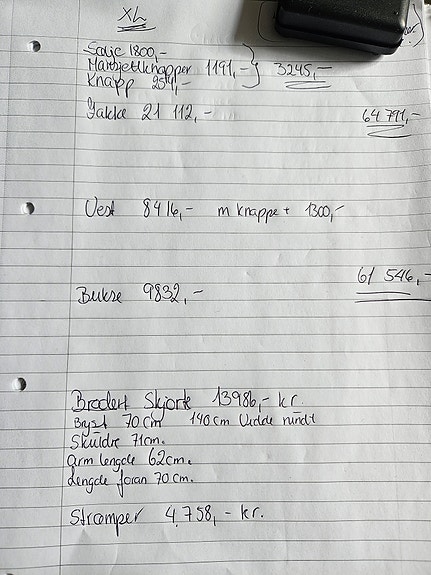 XL
Solje 1800,-
Mansjettknapper 1191,- } 3245,-
Knapp 254,-
Jakke 21 112,-
64 791,-
Vest 8416,- m knappe + 1300,-
61 546,-
Bukse 9832,-
Brodert Skjorte 13986,- kr.
Bryst 70 cm 140 cm Vidde rundt
Skuldre 71cm.
arm lengde 62cm.
Lengde foran 70 cm.
Strømper 4.758,- kr.